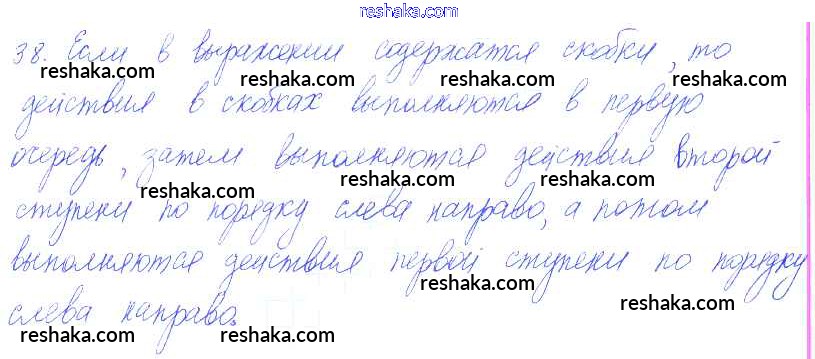 reshaka.com
38. Если в выражении содержатся скобки, то
reshaka.com reshaka.com reshaka.com
действия в скобках выполняются в первую
reshaka.com reshaka.com
очередь, затем выполняются действия второй
reshaka.com reshaka.com reshaka.com
ступени по порядку слева направо, а потом
reshaka.com reshaka.com
выполняются действия первой ступени по порядку
reshaka.com reshaka.com
слева направо.
reshaka.com reshaka.com